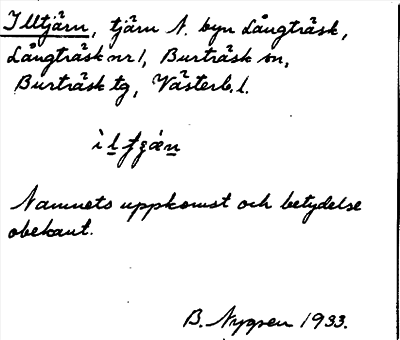 Illtjärn, tjärn N. byn Långträsk,
Långträsk nr 1, Burträsk sn,
Burträsk tg, Västerb. l.
Namnets uppkomst och betydelse
obekant.
B. 1933.